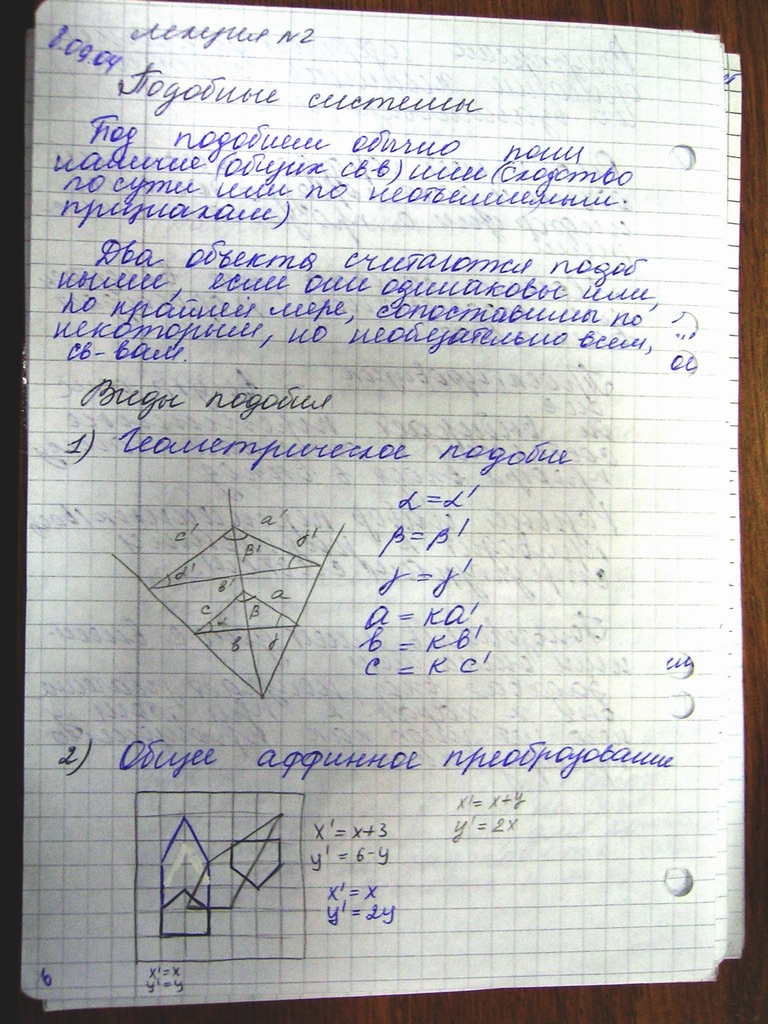 лекция №2
8.09.04
Подобные системы
Под подобием обычно пони
наличие (общих св-в) или (сходство
по сути или по неотъемлемым
признакам)
Два объекта считаются подоб
ными, если они одинаковы или,
по крайней мере, сопоставимы по
некоторым, но необязательно всем,
св-вам.
Виды подобия
1) Геометрическое подобие
c' a' γ'
α' β'
в'
c a
α β γ
в
α = α'
β = β'
γ = γ'
a = ка'
в = кв'
c = к c'
2) Общее аффинное преобразование
x' = x+3
y' = 6-y
x' = x
y' = 2y
x' = x+y
y' = 2x
x' = x
y' = y
6